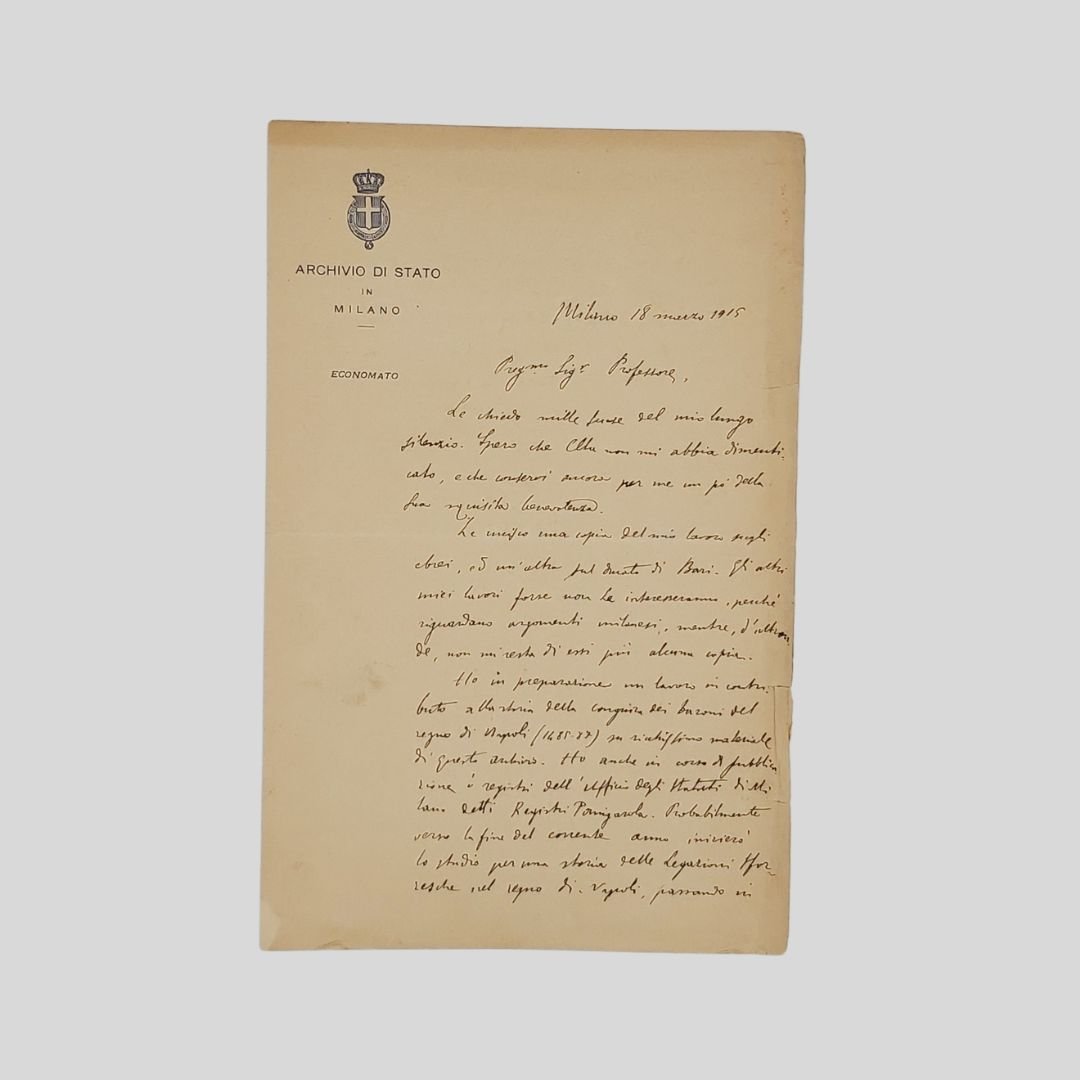 ARCHIVIO DI STATO
IN
MILANO
ECONOMATO
Milano 18 marzo 1915
Preg.mo Sig.r Professore,
Le chiedo mille scuse del mio lungo
silenzio. Spero che Ella non mi abbia dimenti-
cato, e che conservi ancora per me un pò della
Sua squisita benevolenza.
Le unisco una copia del mio lavoro sugli
ebrei, ed un'altra sul ducato di Bari. Gli altri
miei lavori forse non Le interesseranno, perchè
riguardano argomenti milanesi, mentre, d'altron
de, non mi resta di essi più alcuna copia.
Ho in preparazione un lavoro in contri-
buto alla storia della congiura dei baroni del
regno di Napoli (1485-87) su ricchissimo materiale
di questo archivio. Ho anche in corso di pubblica
zione i registri dell'Ufficio degli Statuti di Mi
lano detti Registri Panigarola. Probabilmente
verso la fine del corrente anno inizierò
lo studio per una storia delle Legazioni Sfor-
zesche nel regno di Napoli, passando in